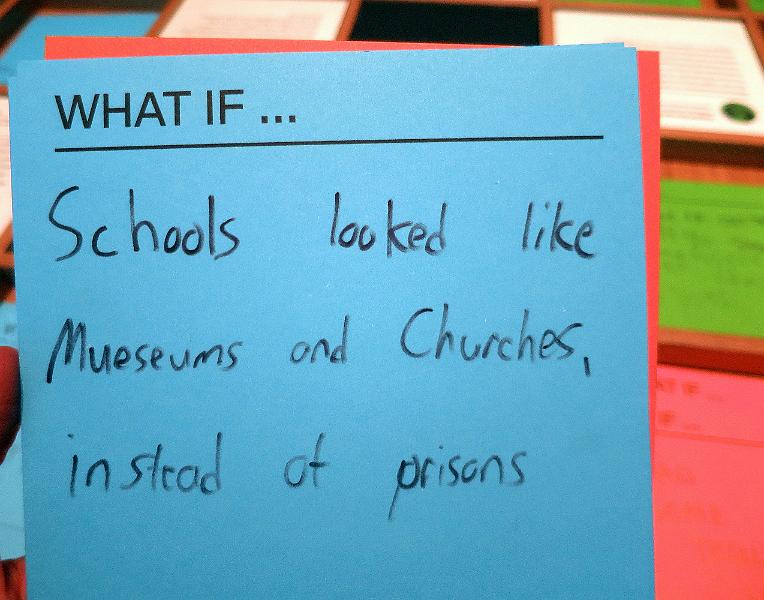 WHAT IF ...
Schools looked like
Mueseums and Churches,
instead of prisons